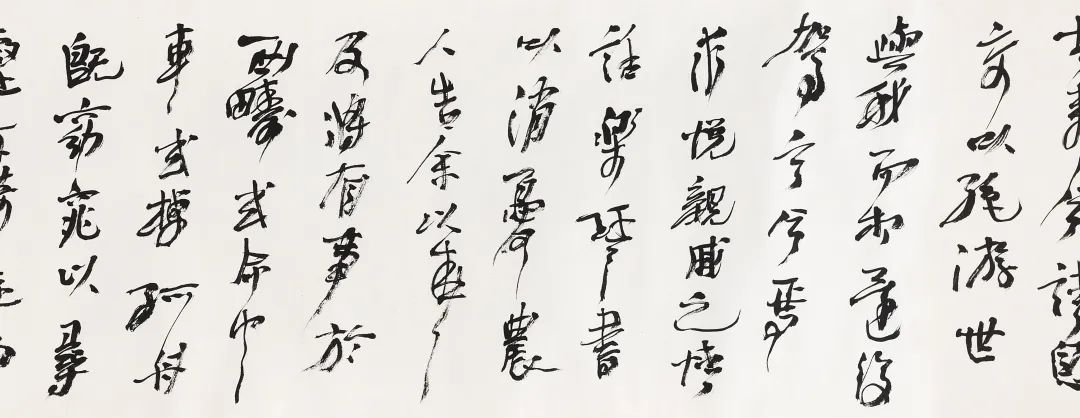 去來兮請息
交以絕游世
與我而相違復
駕言兮焉
求悅親戚之情
話樂琴書
以消憂農
人告余以春
及將有事於
西疇或命巾
車或棹孤舟
既窈窕以尋